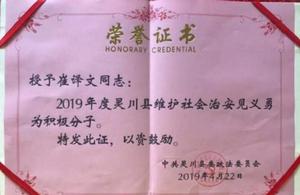 荣誉证书
HONORARY CREDENTIAL
授予崔译文同志：
2019年度灵川县维护社会治安见义勇
为积极分子。
特发此证，以资鼓励。
中共灵川县委政法委员会
2019年4月22日